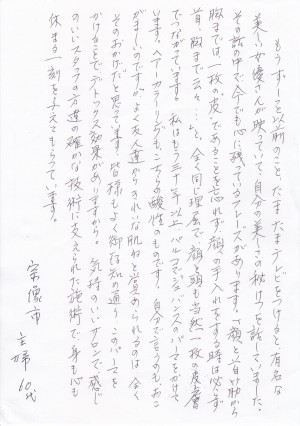 もうずーっと以前のこと、たまたまテレビをつけると有名な
美しい女優さんが映っていて、自分の美しさの秘けつを話していました。
その話の中で今でも心に残っているフレーズがあります。「顔と首から
胸までは一枚の皮であることを忘れず、顔の手入れをする時は必ず
首、胸まで云々…」と、全く同じ理屈で顔と頭も当然一枚の皮膚
でつながっています。私はもう三十年以上、パルコでジョバンスのパーマをかけて
います。ヘアーカラリングもこちらの酸性のものです。自分で言うのもおこ
がましいのですが、よく友人達からきれいな肌ねと言われるのは全く
そのおかげだと思っています。皆様もよく御存知の通りこのパーマを
かけることでデトックス効果がありますから。気持のいいサロンで、感じ
のいいスタッフの方達の確かな技術に支えられた施術で身も心も
休まる一刻を与えてもらっています。
宗像市
主婦 60代